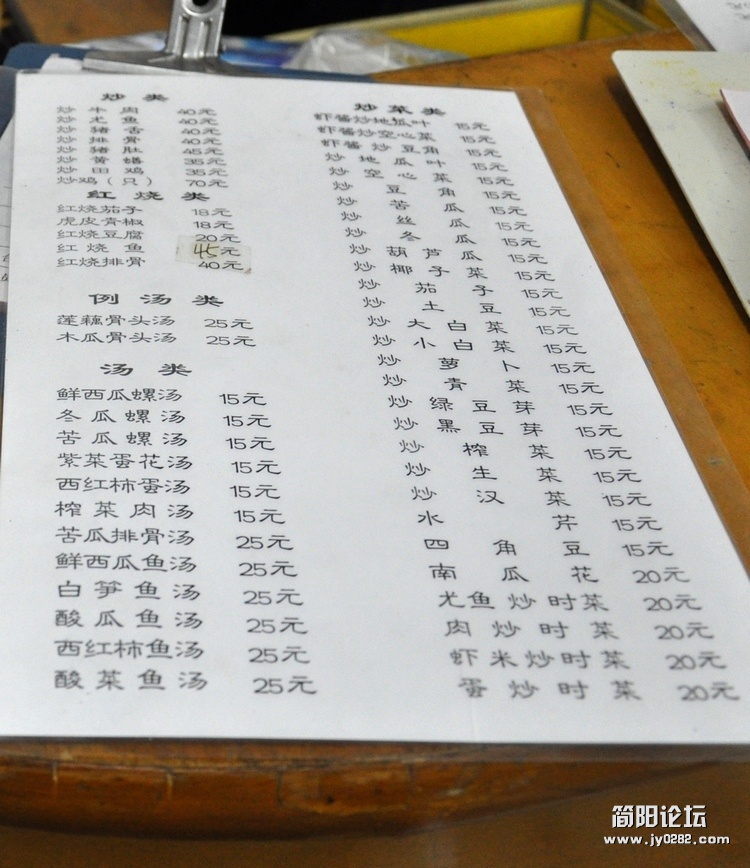 炒类
炒牛肉 40元
炒尤鱼 40元
炒猪舌 40元
炒排骨 40元
炒猪肚 45元
炒黄鳝 35元
炒田鸡 35元
炒鸡(只) 70元
红烧类
红烧茄子 18元
虎皮青椒 18元
红烧豆腐 20元
红烧鱼 45元
红烧排骨 40元
例汤类
莲藕骨头汤 25元
木瓜骨头汤 25元
汤类
鲜西瓜螺汤 15元
冬瓜螺汤 15元
苦瓜螺汤 15元
紫菜蛋花汤 15元
西红柿蛋汤 15元
榨菜肉汤 15元
苦瓜排骨汤 25元
鲜西瓜鱼汤 25元
白笋鱼汤 25元
酸瓜鱼汤 25元
西红柿鱼汤 25元
酸菜鱼汤 25元
炒菜类
虾酱炒地瓜叶 15元
虾酱炒空心菜 15元
虾酱炒豆角 15元
炒地瓜叶 15元
炒空心菜 15元
炒豆角 15元
炒苦瓜 15元
炒丝瓜 15元
炒冬瓜 15元
炒葫芦瓜 15元
炒椰子菜 15元
炒茄子 15元
炒土豆 15元
炒大白菜 15元
炒小白菜 15元
炒萝卜 15元
炒青菜 15元
炒绿豆芽 15元
炒黑豆芽 15元
炒榨菜 15元
炒生菜 15元
炒汉菜 15元
水芹 15元
四角豆 15元
南瓜花 20元
尤鱼炒时菜 20元
肉炒时菜 20元
虾米炒时菜 20元
蛋炒时菜 20元
简阳论坛
www.jy0282.com